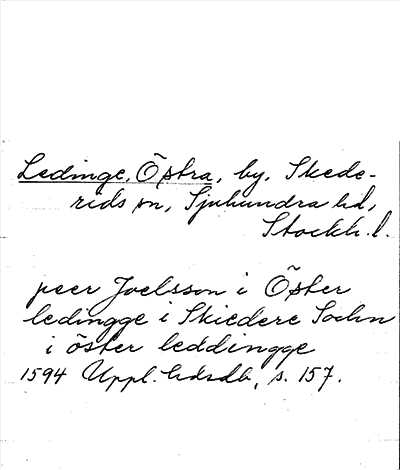 Ledinge, Östra, by, Skede-
rids sn, Sjuhundra hd,
Stockh. l.
peer Joelsson i Öster
ledingge i Skiedere Sochn
i öster leddingge
1594 Uppl. hdsdb, s. 157.